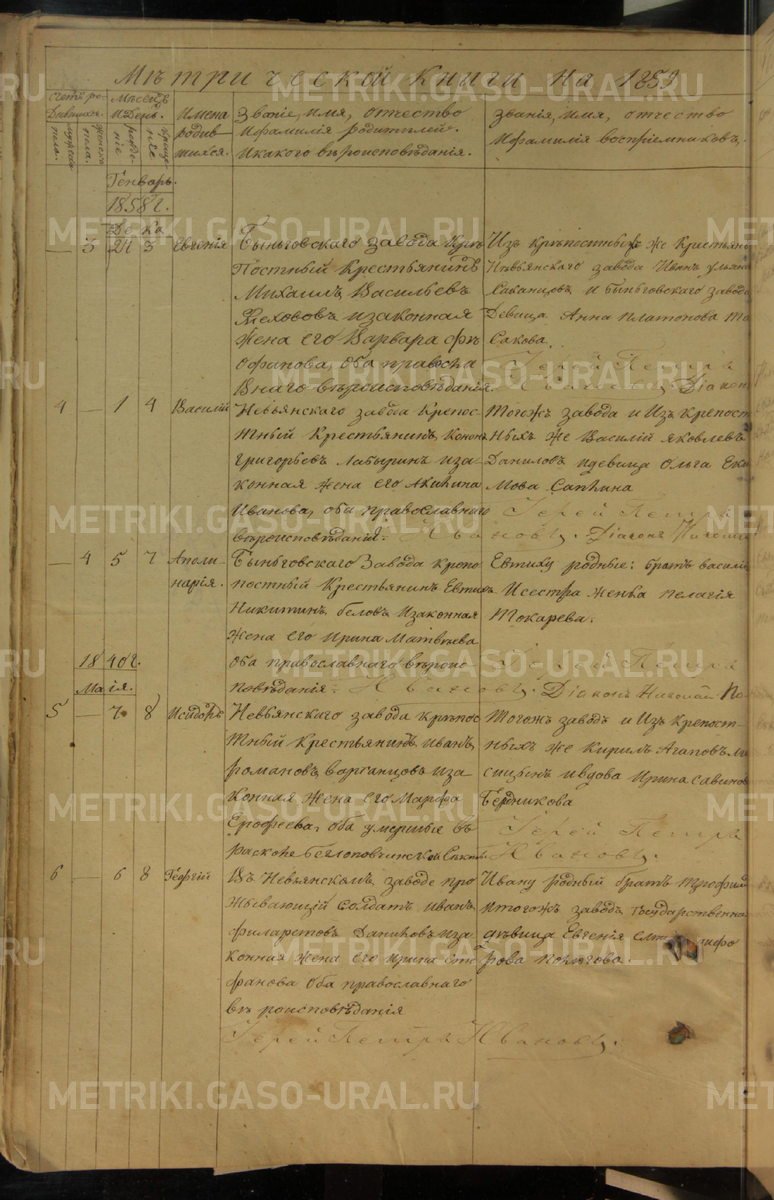 Метрической книги на 1859
Счетъ родившихся.
мужеска пола.
женска пола.
Месецъ и День.
рождение
крещение
Имена родившихся.
Званіе, имя, отчество и фамилія родителей. и какого вероисповеданія.
Званія, имя, отчество и фамилія воспріемниковъ.
Генварь.
1858 г.
Дека
— 3 24 3 Евгенія
Быньговскаго завода Кре
постный Крестьянинъ
Михаилъ Васильевъ
и законная
жена его Варвара Фе
офинова, оба правосла
внаго вероисповеданія
Изъ крепостныхъ же Крестьянъ
Невьянскаго завода Иванъ
и Быньговскаго завода
Девица Анна Платонова
Сакова.
Іерей Петръ
Ивановъ, Діаконъ
4 — 1 4 Василій
Невьянскаго завода Крепос
тный Крестьянинъ Конон
Григорьевъ Лабыринъ и за
конная жена его Акилина
Иванова, оба православнаго
вероисповеданій.
Тогожъ завода и Изъ крепост
ныхъ же Василій Яковлевъ
Даниловъ и девица Ольга Еки
мова Сапкина
Іерей Петръ
Ивановъ. Діаконъ
— 4 5 7 Аполи
нарія.
Быньговскаго Завода крепо
постный Крестьянинъ Евтихъ
Никитинъ Беловъ и законная
жена его Ирина Матвеева
оба православнаго вероис
поведанія.
Евтиху родные: братъ Васили
и сестра женка Пелагія
Токарева.
Іерей Петръ
Ивановъ. Діаконъ Николай По
1840 г.
Маія.
5 — 7 8 Исидоръ
Невьянскаго завода крепос
тный Крестьянинъ Иванъ
Романовъ Ворганцовъ и за
конная жена его Марфа
Ерофеева, оба умершые въ
расколе
Тогожъ заводъ и Изъ крепост-
ныхъ же Кирилъ Агаповъ
и вдова Ирина Савинов
Бердникова
Іерей Петръ
Ивановъ.
6 — 6 8 Георгій
Въ Невьянскомъ заводе про
живающій солдатъ Иванъ
Филаретовъ Даниловъ и за
конная жена его Ирина Сте
фанова оба православнаго
вероисповеданія
Ивану родный братъ Трофим
и тогожъ заводъ Государственна
девица Евгенія
Іерей Петръ Ивановъ.
METRIKI.GASO-URAL.RU